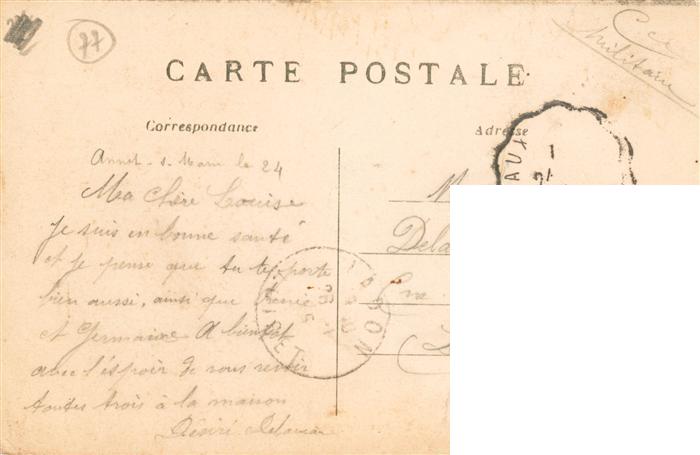 77
Cce
militaire
CARTE POSTALE
Correspondance
Adresse
Annet-s-Marne le 24
Ma chère Louise
Je suis en bonne santé
et je pense que tu te porte
bien aussi, ainsi que
et Germaine A bientôt
avec l'espoir de vous revoir
toutes trois à la maison
Désiré
M
Dela